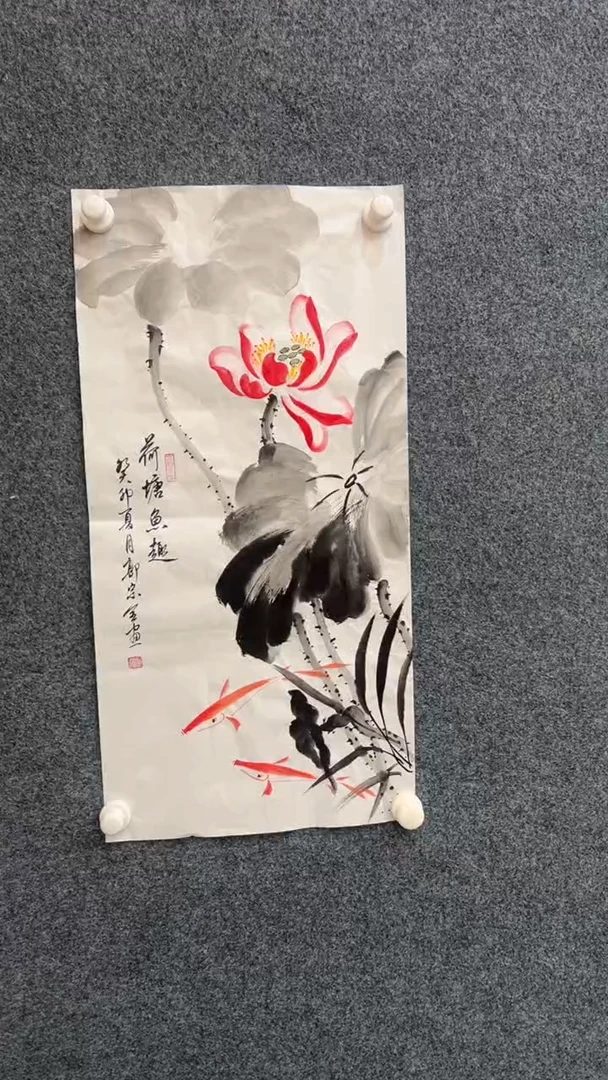 荷塘鱼趣
癸卯夏月郭宗全画